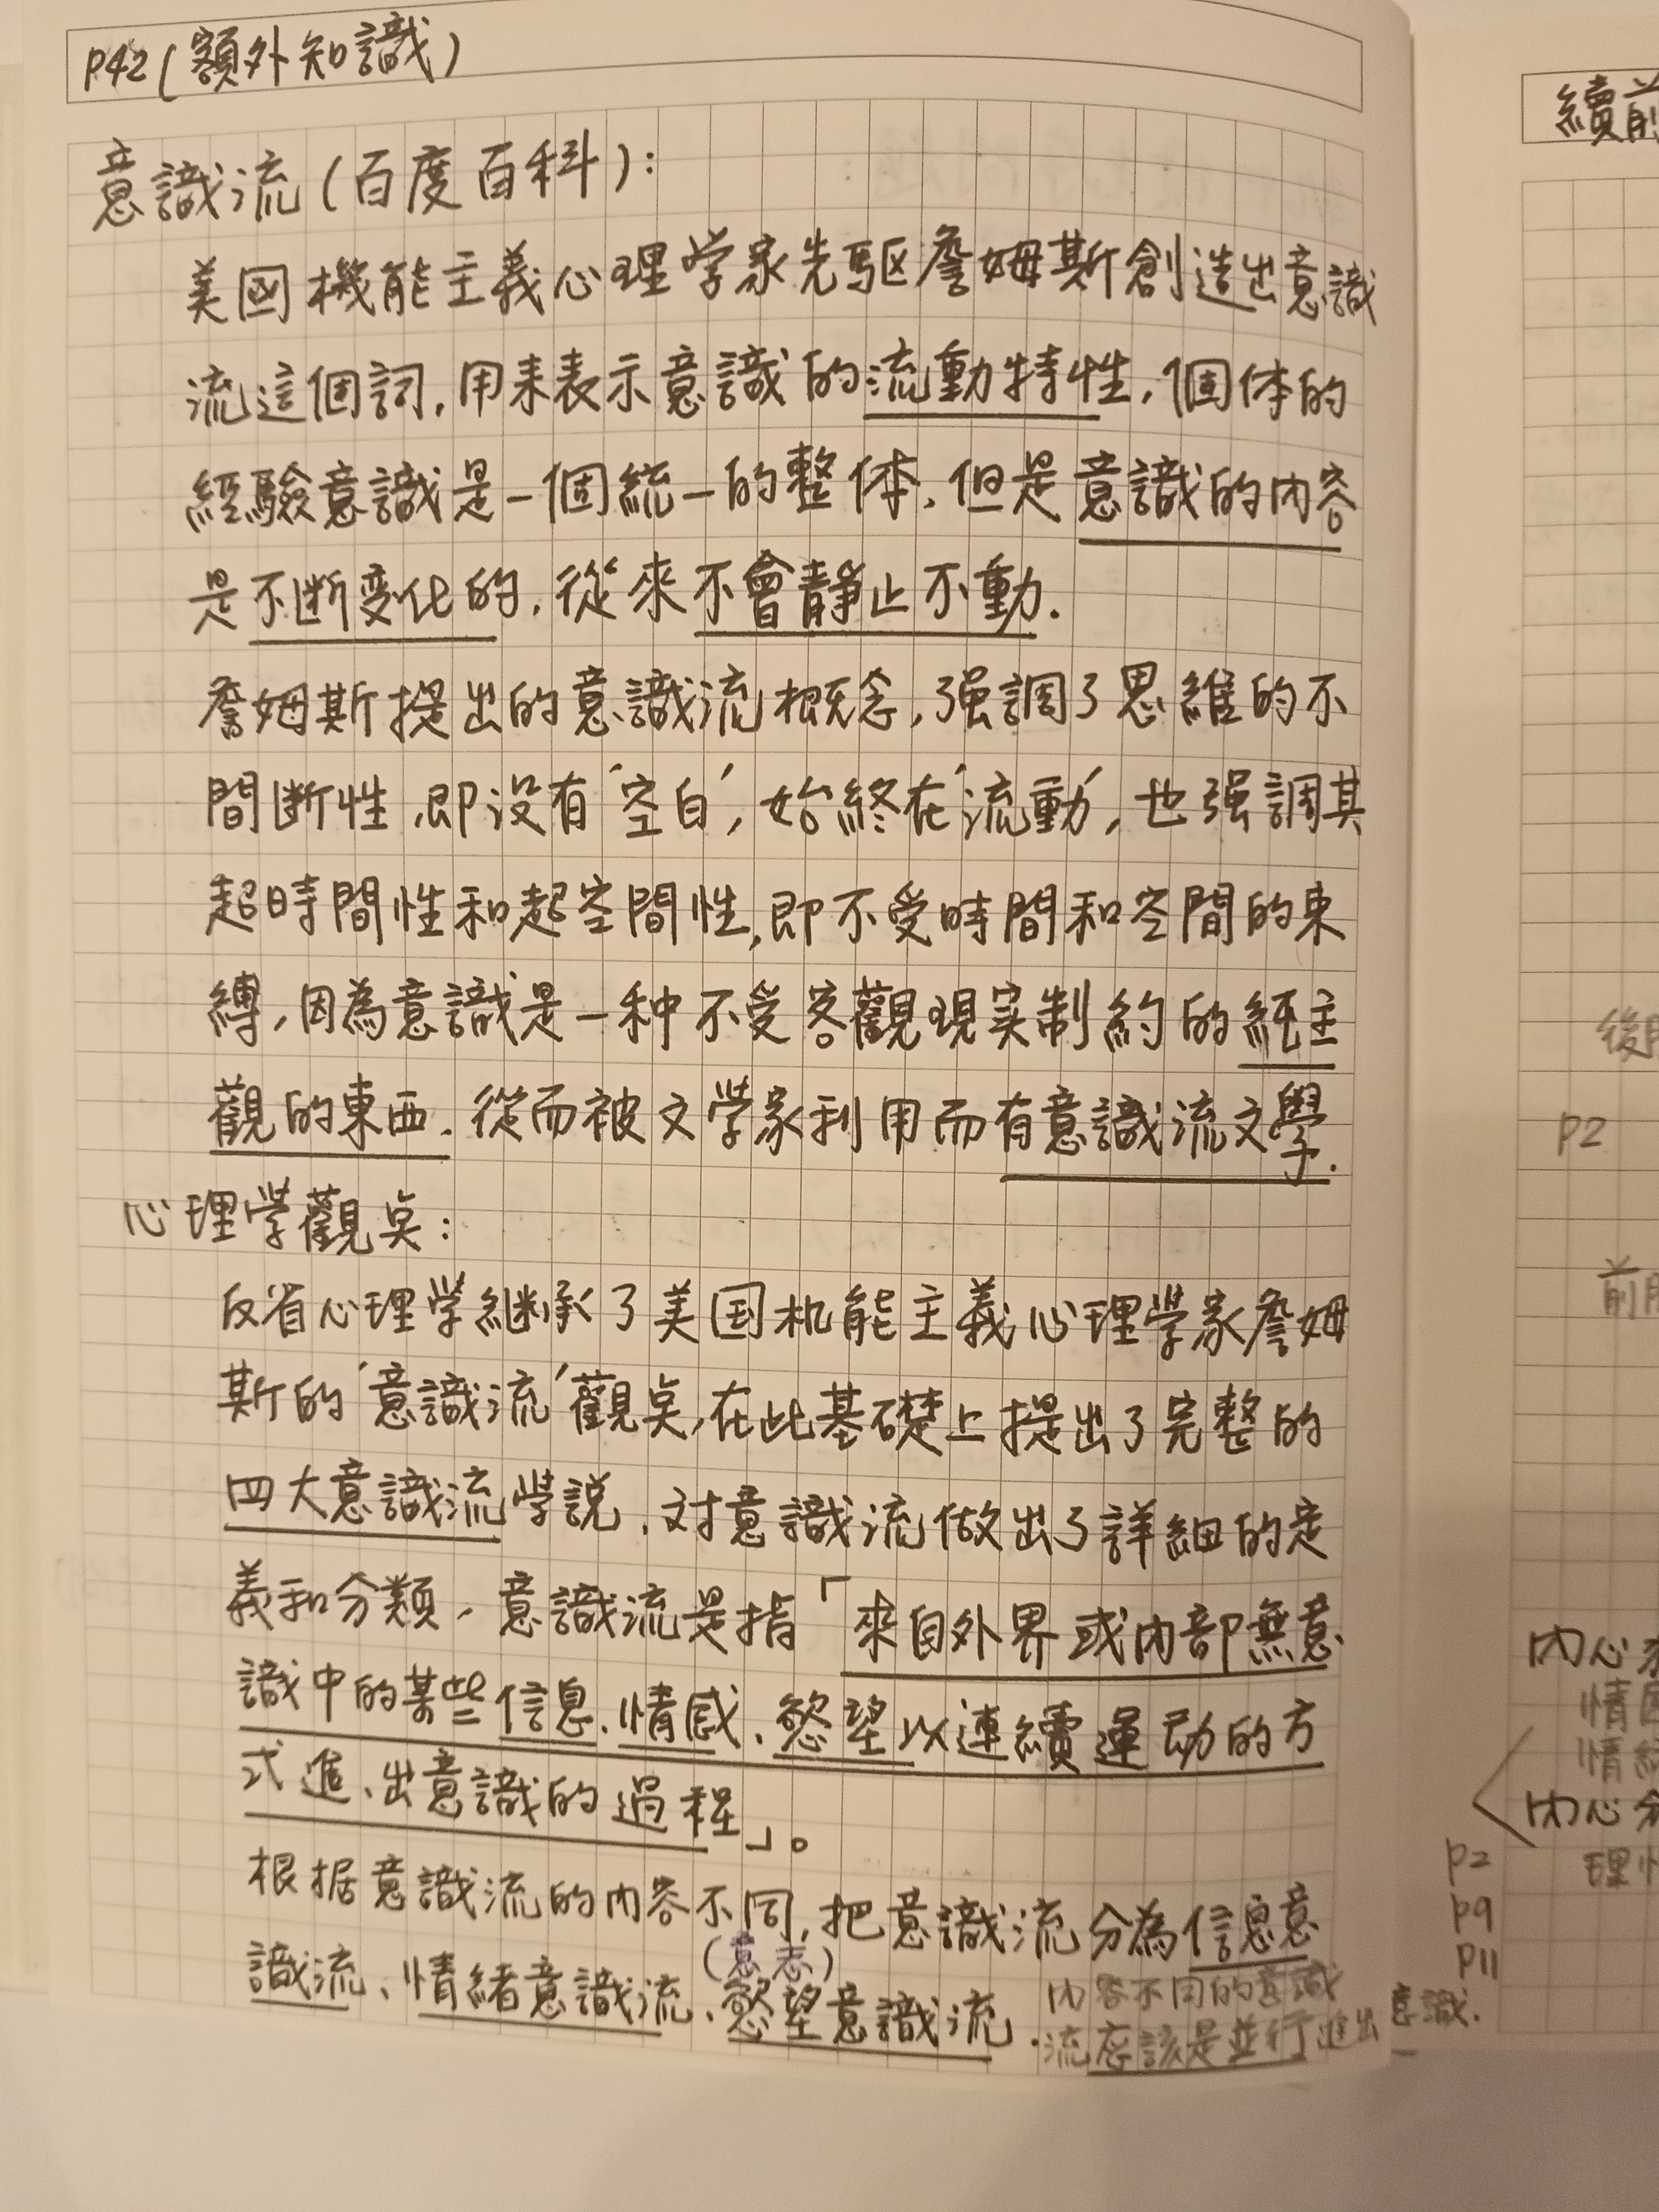 P42(額外知識)
意識流(百度百科):
美國機能主義心理学家先驱詹姆斯創造出意識
流這個詞,用来表示意識的流動特性,個体的
經驗意識是一個統一的整体,但是意識的內容
是不断变化的,從來不會静止不動.
詹姆斯提出的意識流概念,强調了思維的不
間断性,即没有'空白',始終在'流動',也强調其
超時間性和超空間性,即不受時間和空間的束
縛,因為意識是一种不受客觀現实制約的純主
觀的東西.從而被文学家利用而有意識流文學.
心理学觀点:
反省心理学継承了美国机能主義心理学家詹姆
斯的'意識流'觀点,在此基礎上提出了完整的
四大意識流学説,对意識流做出了詳細的定
義和分類,意識流是指「來自外界或內部無意
識中的某些信息、情感、慾望以連續運动的方
式進、出意識的過程」。
根据意識流的內容不同,把意識流分為信息意
(意志)
識流、情緒意識流、慾望意識流.
內容不同的意識
流应該是並行進出意識.
續前
P2
內心
情
情
內心
理
P2
P9
P11